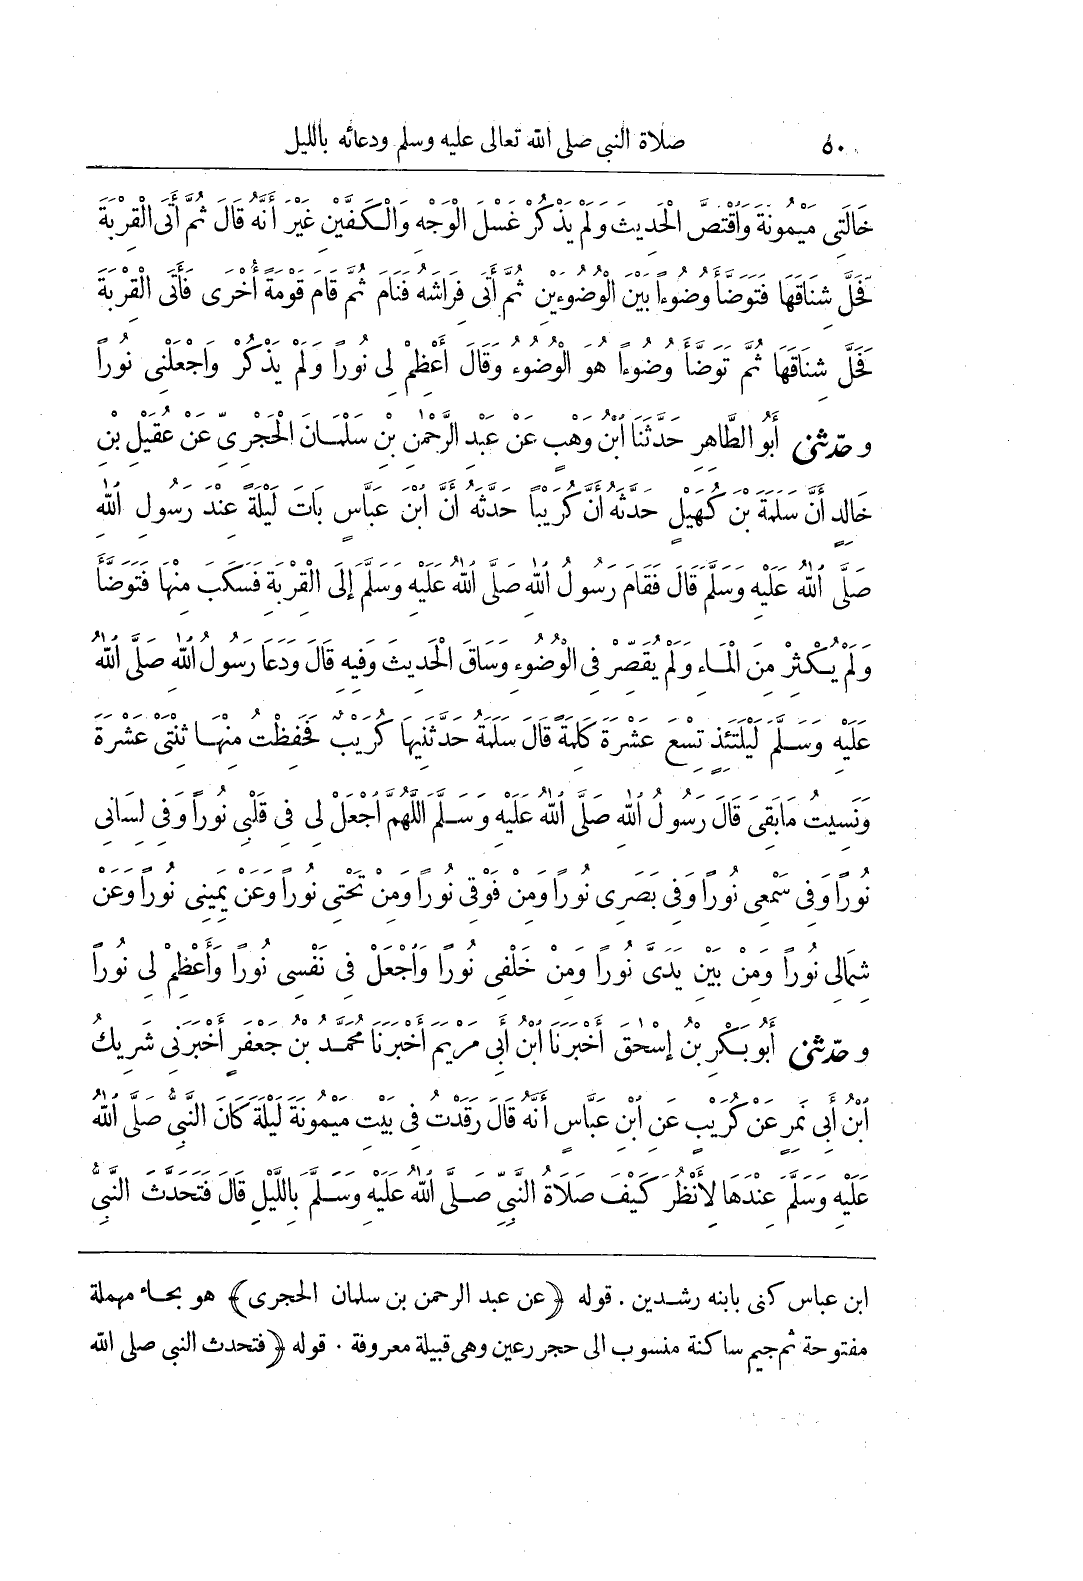 ٥٠ صلاة النبى صلى الله تعالى عليه وسلم ودعائه بالليل
خَالَتِى مَيْمُونَةَ وَاقْتَصَّ الْحَدِيثَ وَلَمْ يَذْكُرْ غَسْلَ الْوَجْهِ وَالْكَفَّيْنِ غَيْرَ أَنَّهُ قَالَ ثُمَّ أَتَى الْقِرْبَةَ
فَحَلَّ شِنَاقَهَا فَتَوَضَّأَ وُضُوءاً بَيْنَ الْوُضُوءَيْنِ ثُمَّ أَتَى فِرَاشَهُ فَنَامَ ثُمَّ قَامَ قَوْمَةً أُخْرَى فَأَتَى الْقِرْبَةَ
فَحَلَّ شِنَاقَهَا ثُمَّ تَوَضَّأَ وُضُوءاً هُوَ الْوُضُوءُ وَقَالَ أَعْظِمْ لِى نُوراً وَلَمْ يَذْكُرْ وَاجْعَلْنِى نُوراً
و حدّثنى أَبُو الطَّاهِرِ حَدَّثَنَا ابْنُ وَهْبٍ عَنْ عَبْدِ الرَّحْمٰنِ بْنِ سَلْمَانَ الْحَجْرِىِّ عَنْ عُقَيْلِ بْنِ
خَالِدٍ أَنَّ سَلَمَةَ بْنَ كُهَيْلٍ حَدَّثَهُ أَنَّ كُرَيْباً حَدَّثَهُ أَنَّ ابْنَ عَبَّاسٍ بَاتَ لَيْلَةً عِنْدَ رَسُولِ اللهِ
صَلَّى اللهُ عَلَيْهِ وَسَلَّمَ قَالَ فَقَامَ رَسُولُ اللهِ صَلَّى اللهُ عَلَيْهِ وَسَلَّمَ إِلَى الْقِرْبَةِ فَسَكَبَ مِنْهَا فَتَوَضَّأَ
وَلَمْ يُكْثِرْ مِنَ الْمَاءِ وَلَمْ يُقَصِّرْ فِى الْوُضُوءِ وَسَاقَ الْحَدِيثَ وَفِيهِ قَالَ وَدَعَا رَسُولُ اللهِ صَلَّى اللهُ
عَلَيْهِ وَسَلَّمَ لَيْلَتَئِذٍ تِسْعَ عَشْرَةَ كَلِمَةً قَالَ سَلَمَةُ حَدَّثَنِيهَا كُرَيْبٌ فَحَفِظْتُ مِنْهَا ثِنْتَىْ عَشْرَةَ
وَنَسِيتُ مَا بَقِىَ قَالَ رَسُولُ اللهِ صَلَّى اللهُ عَلَيْهِ وَسَلَّمَ اللَّهُمَّ اجْعَلْ لِى فِى قَلْبِى نُوراً وَفِى لِسَانِى
نُوراً وَفِى سَمْعِى نُوراً وَفِى بَصَرِى نُوراً وَمِنْ فَوْقِى نُوراً وَمِنْ تَحْتِى نُوراً وَعَنْ يَمِينِى نُوراً وَعَنْ
شِمَالِى نُوراً وَمِنْ بَيْنِ يَدَىَّ نُوراً وَمِنْ خَلْفِى نُوراً وَاجْعَلْ فِى نَفْسِى نُوراً وَأَعْظِمْ لِى نُوراً
و حدّثنى أَبُو بَكْرِ بْنُ إِسْحٰقَ أَخْبَرَنَا ابْنُ أَبِى مَرْيَمَ أَخْبَرَنَا مُحَمَّدُ بْنُ جَعْفَرٍ أَخْبَرَنِى شَرِيكُ
ابْنُ أَبِى نَمِرٍ عَنْ كُرَيْبٍ عَنِ ابْنِ عَبَّاسٍ أَنَّهُ قَالَ رَقَدْتُ فِى بَيْتِ مَيْمُونَةَ لَيْلَةَ كَانَ النَّبِىُّ صَلَّى اللهُ
عَلَيْهِ وَسَلَّمَ عِنْدَهَا لِأَنْظُرَ كَيْفَ صَلَاةُ النَّبِىِّ صَلَّى اللهُ عَلَيْهِ وَسَلَّمَ بِاللَّيْلِ قَالَ فَتَحَدَّثَ النَّبِىُّ
ابن عباس كنى بابنه رشدين . قوله ﴿عن عبد الرحمن بن سلمان الحجرى﴾ هو بحاء مهملة
مفتوحة ثم جيم ساكنة منسوب الى حجر رعين وهى قبيلة معروفة . قوله ﴿فتحدث النبى صلى الله